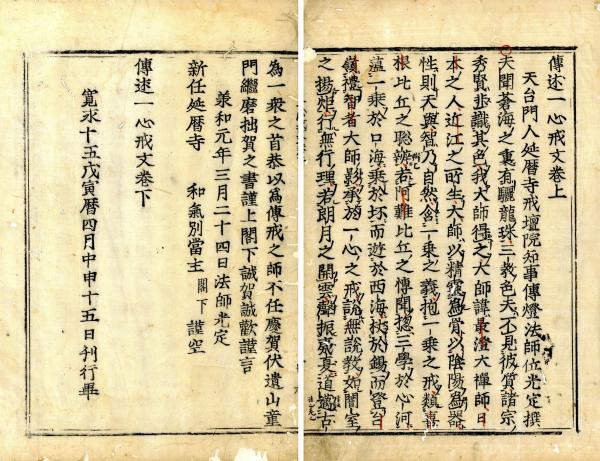 傳述一心戒文卷上
天台門人延暦寺戒壇院知事傳燈法師位光定撰
夫聞蒼海之裏有驪龍珠三教色天不見彼質諸宗
秀賢悲識其色我大師得之大師諱最澄大禪師曰
本之人近江之所生大師以精靈爲骨以陰陽爲器
性則天與智乃自然含一乘之義抱一乘之戒類喜
根比丘之聡辨若阿難比丘之傳聞惣三學於心河
蘊一乘於口海乘於坏而遊於西海杖於錫而登台
嶺禮智者大師影承於一心之戒説無説教如闇室
之揚炬行無行理若朗月之開雲聲振戎夏道邁古
爲一衆之首恭以爲傳戒之師不任慶賀伏遣山童
門繼磨拙賀之書謹上閣下誠賀誠歡謹言
承和元年三月二十四日法師光定
新任延暦寺 和氣別當主 閣下 謹空
傳述一心戒文卷下
寛永十五戊寅暦四月中申十五日刊行畢